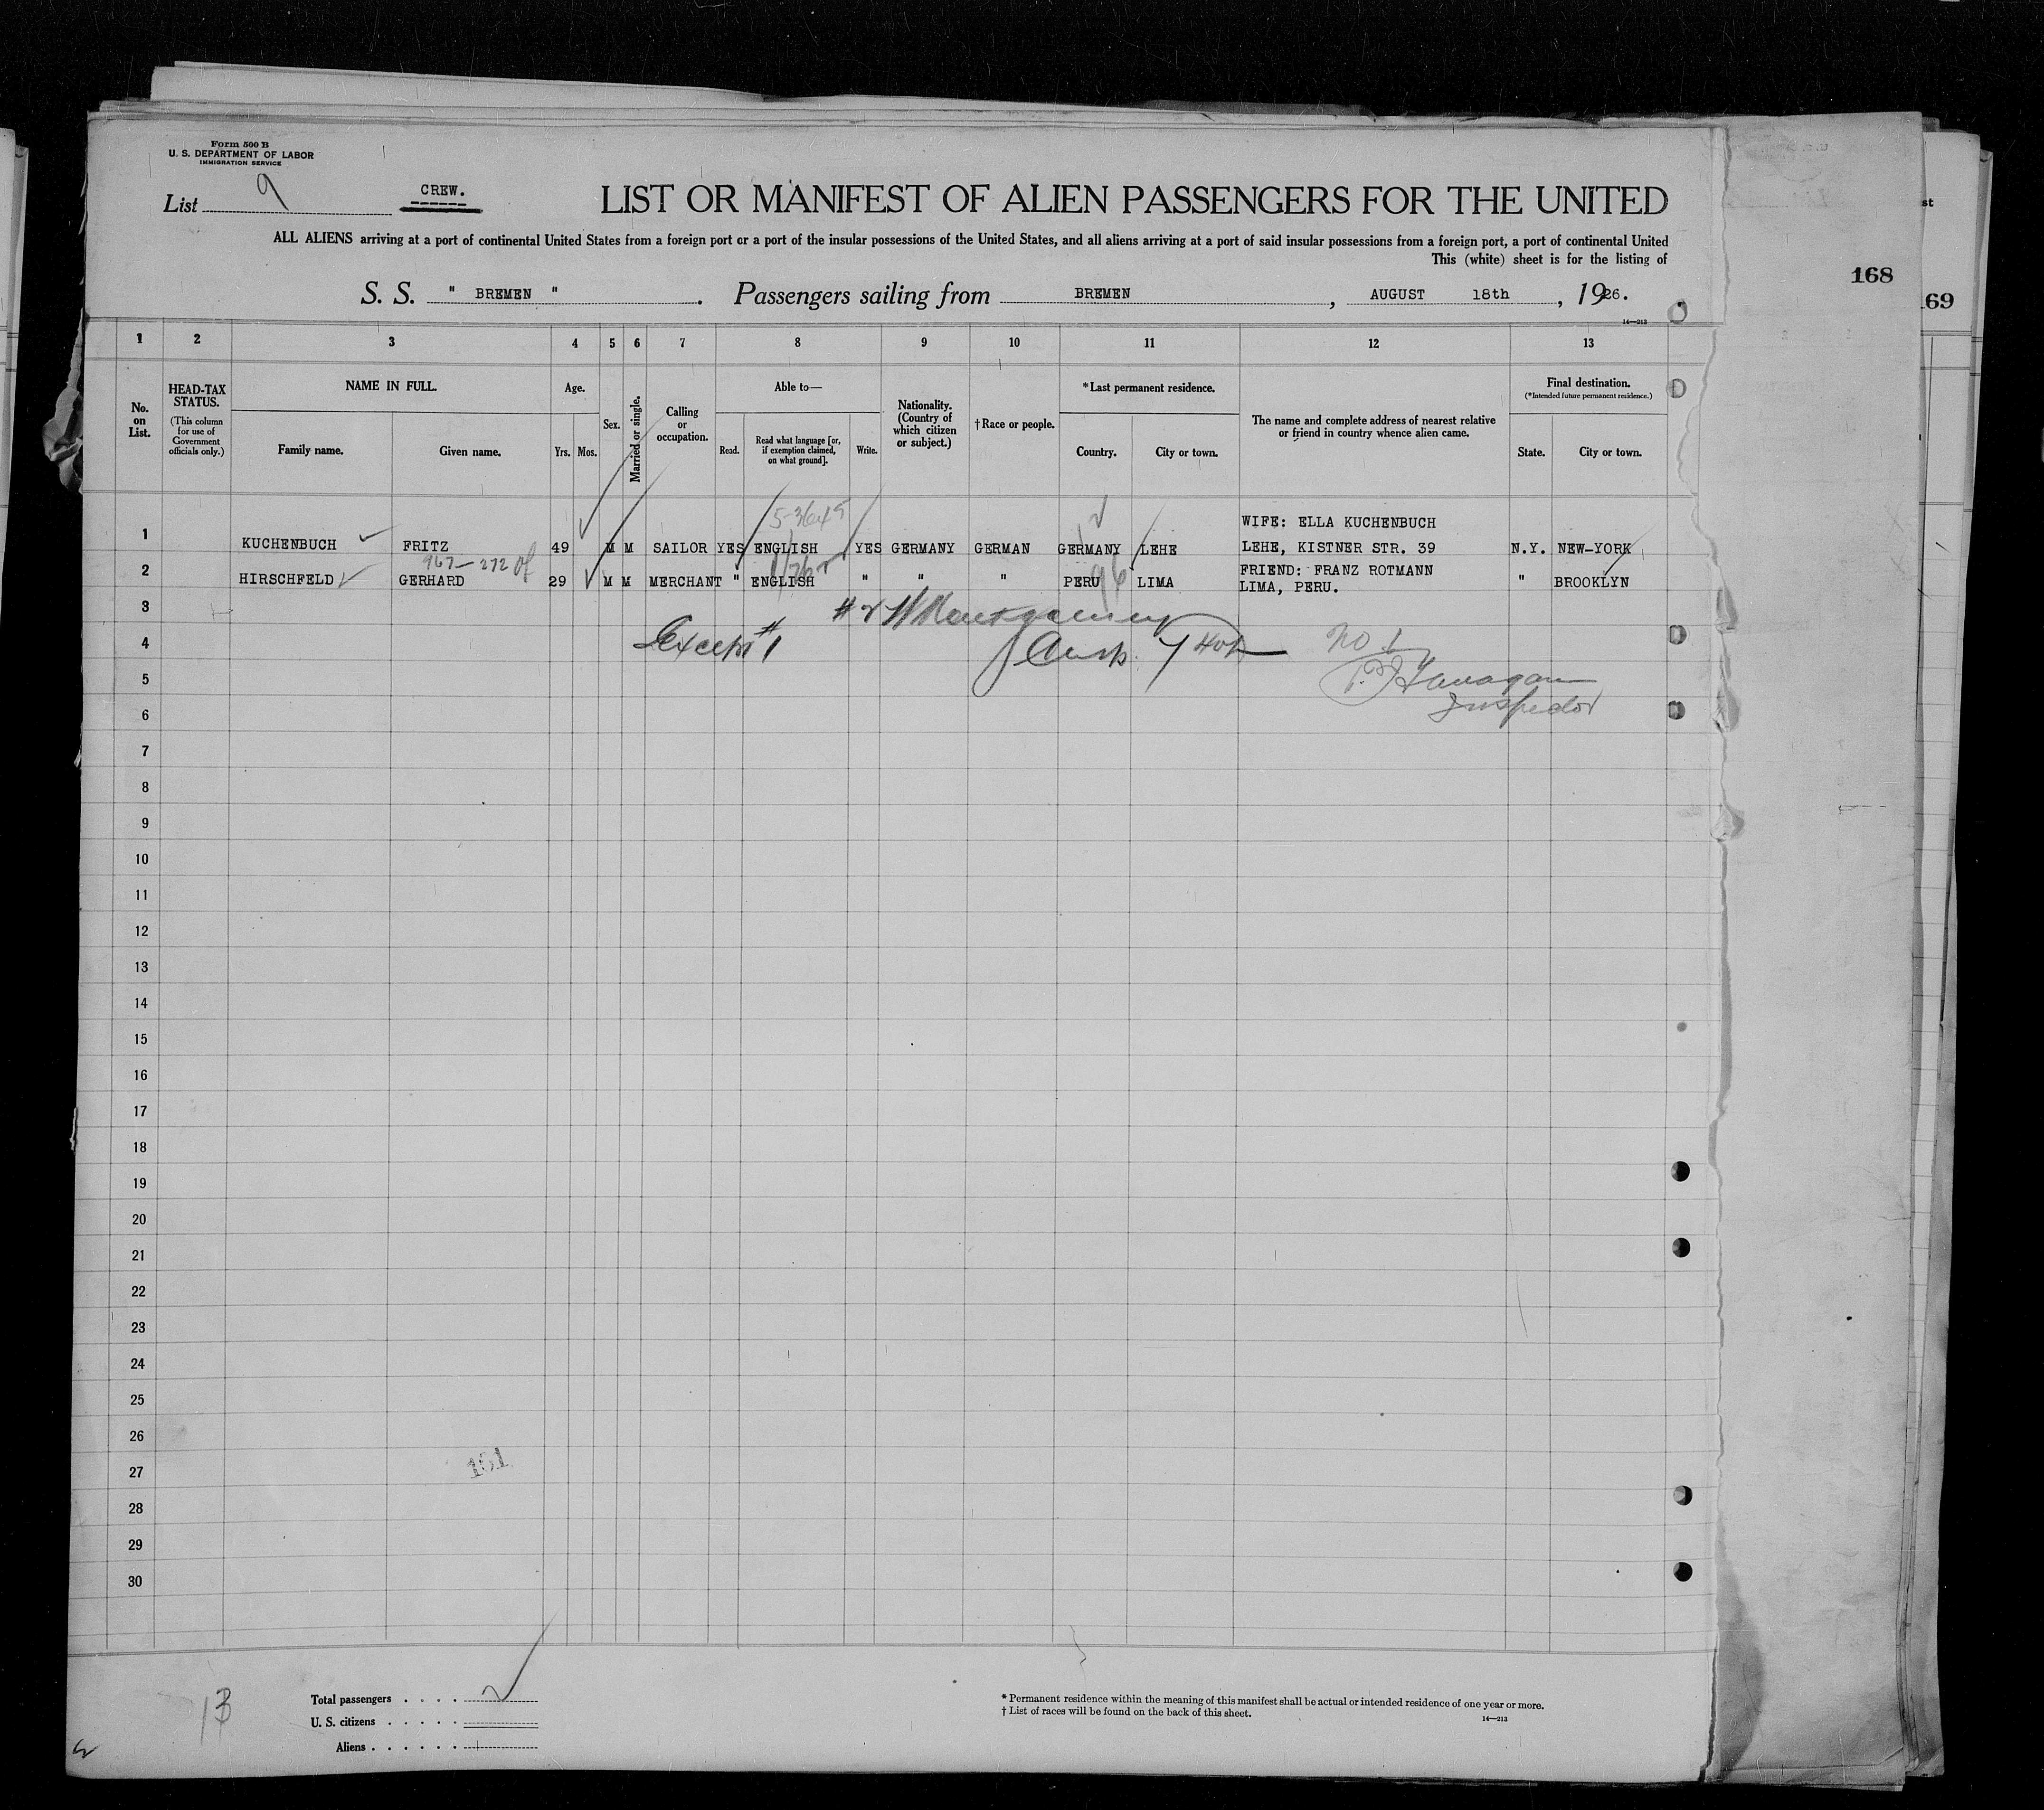 Form 500 B
U. S. DEPARTMENT OF LABOR
IMMIGRATION SERVICE
List 9 CREW.
LIST OR MANIFEST OF ALIEN PASSENGERS FOR THE UNITED
ALL ALIENS arriving at a port of continental United States from a foreign port or a port of the insular possessions of the United States, and all aliens arriving at a port of said insular possessions from a foreign port, a port of continental United
This (white) sheet is for the listing of
S. S. " BREMEN " . Passengers sailing from BREMEN , AUGUST 18th , 1926.
14—213
st
168
69
1 2 3 4 5 6 7 8 9 10 11 12 13
No. on List.
HEAD-TAX STATUS.
(This column for use of Government officials only.)
NAME IN FULL.
Family name. Given name.
Age.
Yrs. Mos.
Sex.
Married or single.
Calling or occupation.
Able to—
Read. Read what language [or, if exemption claimed, on what ground]. Write.
Nationality. (Country of which citizen or subject.)
† Race or people.
*Last permanent residence.
Country. City or town.
The name and complete address of nearest relative or friend in country whence alien came.
Final destination.
(*Intended future permanent residence.)
State. City or town.
WIFE: ELLA KUCHENBUCH
1 KUCHENBUCH FRITZ 49 M M SAILOR YES ENGLISH YES GERMANY GERMAN GERMANY LEHE LEHE, KISTNER STR. 39 N.Y. NEW-YORK
967-272
FRIEND: FRANZ ROTMANN
2 HIRSCHFELD GERHARD 29 M M MERCHANT " ENGLISH " " " PERU LIMA LIMA, PERU. " BROOKLYN
3 #2 Montgomery
4 Except #1 No 1
5 Flanagan
6 Inspector
7
8
9
10
11
12
13
14
15
16
17
18
19
20
21
22
23
24
25
26
27 151
28
29
30
13
Total passengers . . . .
U. S. citizens . . . . .
Aliens . . . . . .
* Permanent residence within the meaning of this manifest shall be actual or intended residence of one year or more.
† List of races will be found on the back of this sheet.
14—213